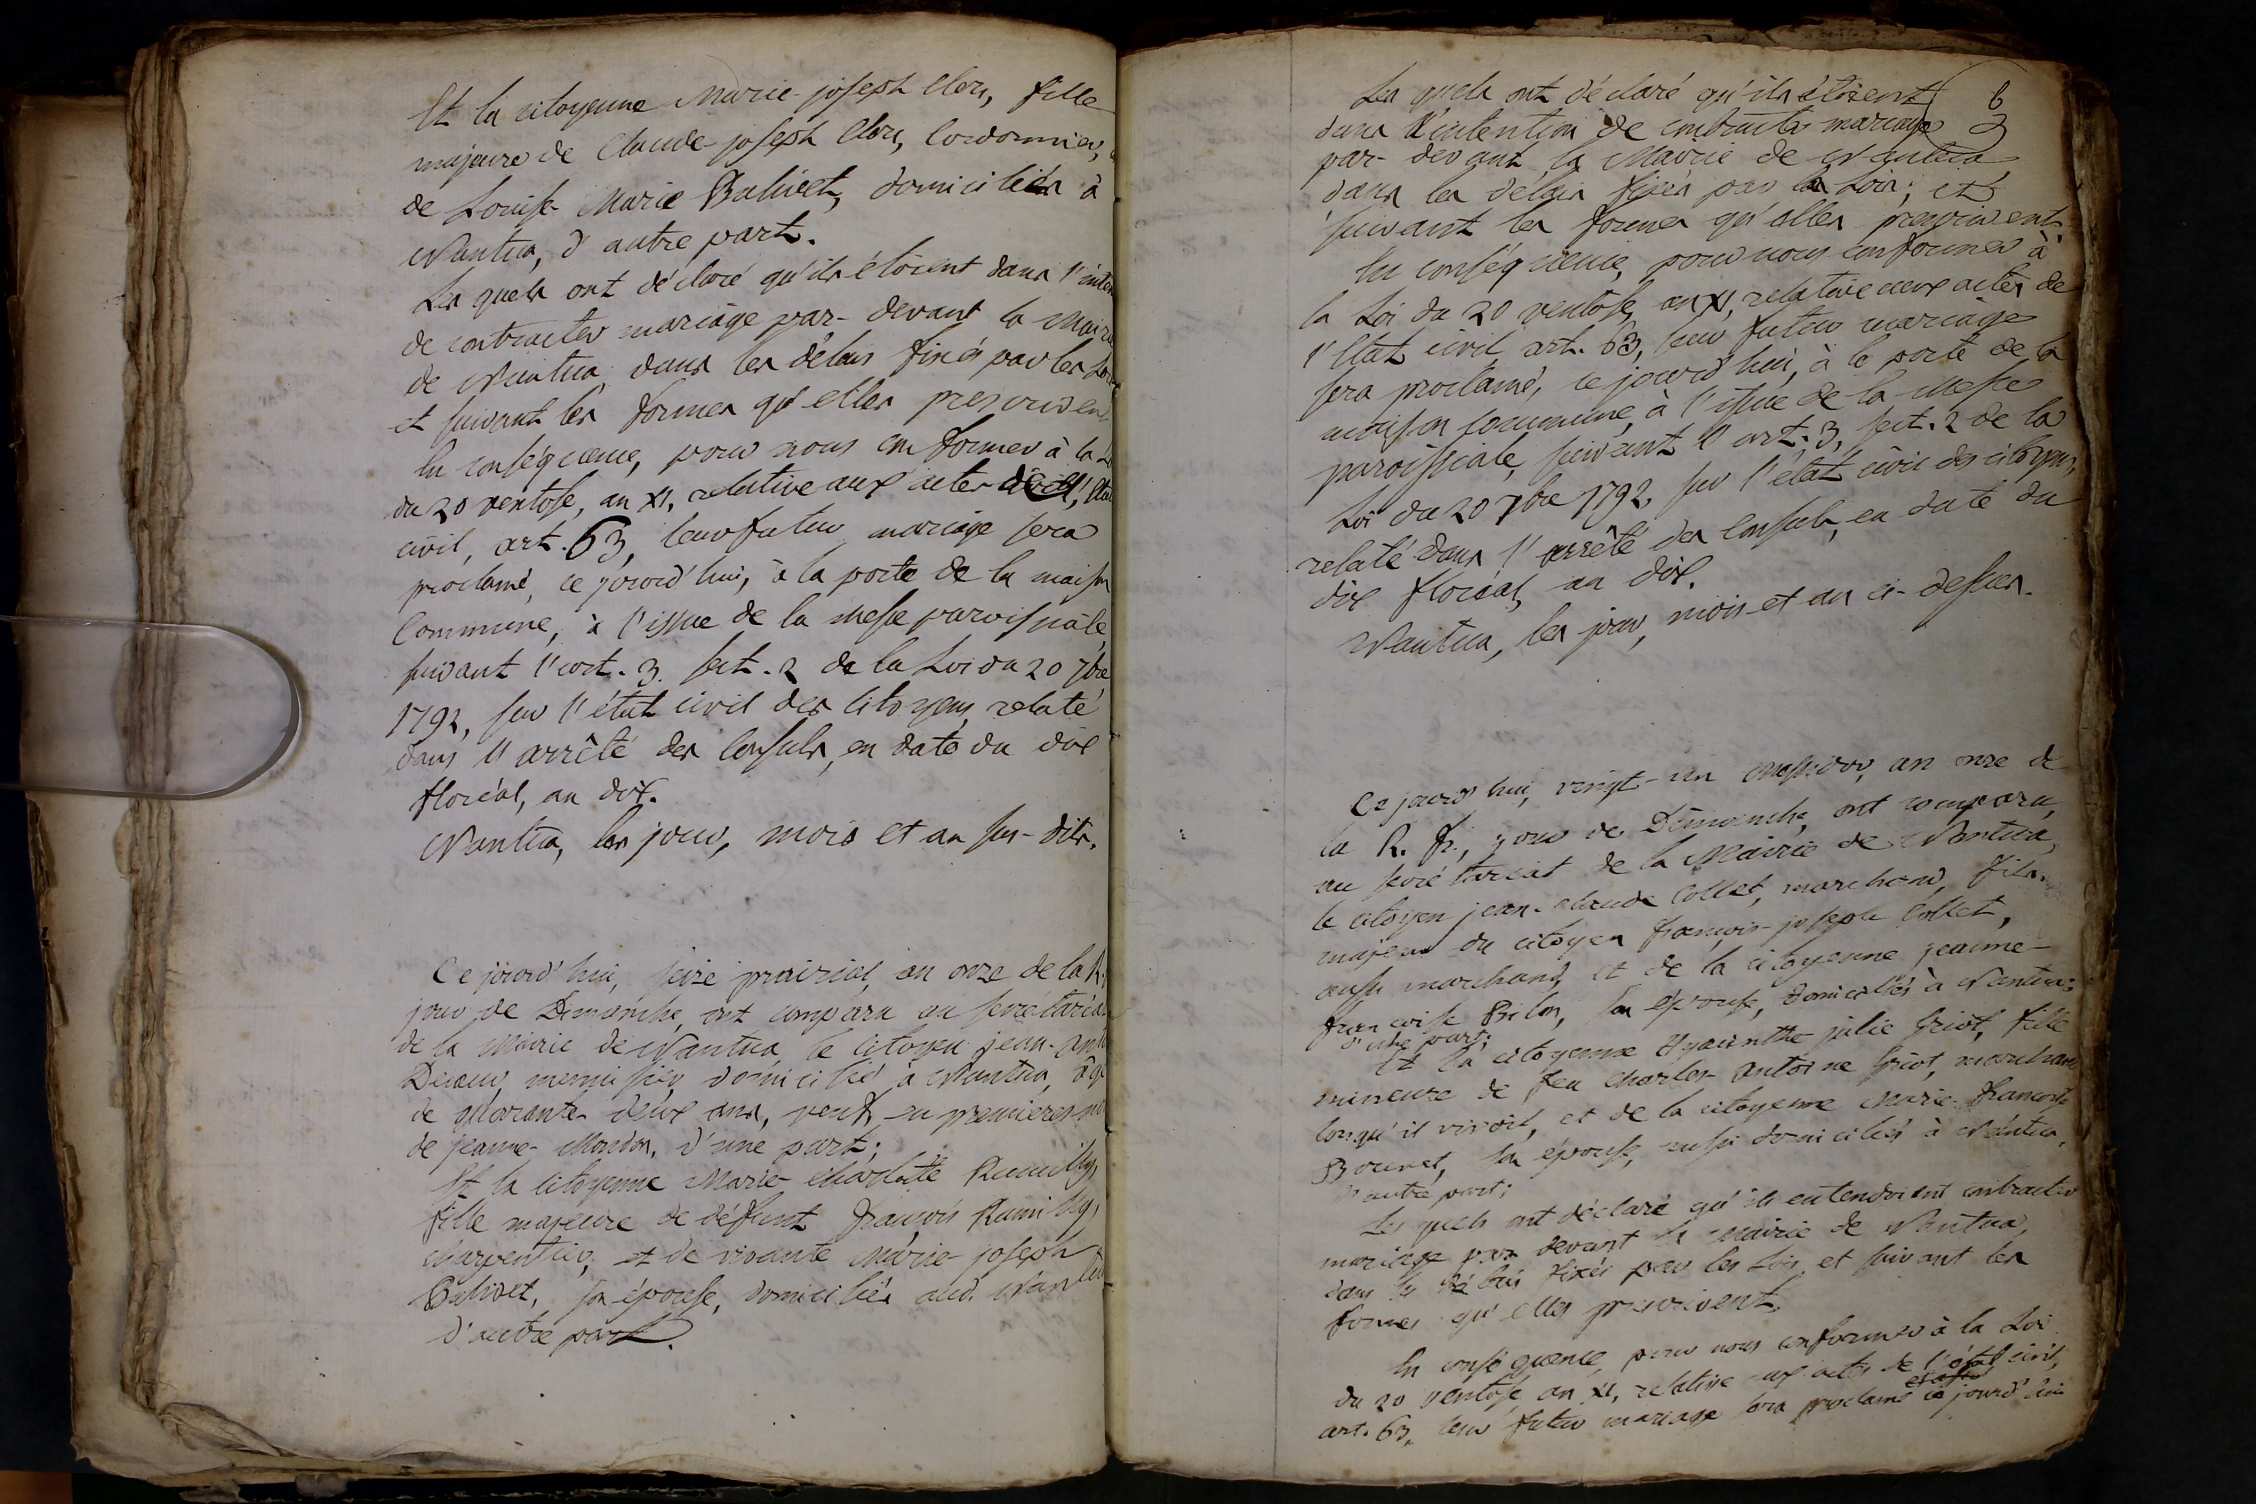 Et la citoyenne Marie-joseph Clerc, fille
majeure de Claude-joseph Clerc, Cordonnier,
de Louise Marie Balivet, domiciliés à
Nantua, d'autre part.
Les quels ont déclaré qu'ils étoient dans l'inten
de contracter mariage par-devant la Mairie
de Nantua, dans les délais fixés par les Lois
et suivant les formes qu'elles prescrivent.
En conséquence, pour nous conformer à la
du 20 ventose, an XI, relative aux actes de l'Etat
civil, art. 63, leur futur mariage sera
proclamé, ce jourd'hui, à la porte de la maison
Commune, à l'issue de la Messe paroissiale,
suivant l'art. 3. sect. 2 de la Loi du 20 7bre
1792, sur l'état civil des citoyens, relaté
dans l'arrêté des Consuls, en date du dix
floréal, an dix.
Nantua, les jour, mois et an sus-dits.
Ce jourd'hui, seize prairial, an onze de la R.
jour de Dimanche, ont comparu au secrétariat
de la Mairie de Nantua, le citoyen jean-
menuisier, domicilié à Nantua, âgé
de quarante-deux ans, veuf, en premieres
de jeanne d'une part;
Et la citoyenne Marie-Charlotte Rumilly,
fille majeure de défunt françois Rumilly,
charpentier, et de vivante Marie-joseph
Balivet, son épouse, domiciliés aud. Nantua
d'autre part.
6
Les quels ont déclaré qu'ils étoient
dans l'intention de contracter mariage
par-devant la Mairie de Nantua,
dans les délais fixés par les Lois; et
suivant les formes qu'elles prescrivent.
En conséquence, pour nous conformer à
la Loi du 20 ventose, an XI, relative aux actes de
l'Etat civil, art. 63, leur futur mariage
sera proclamé, ce jourd'hui, à la porte de la
maison commune, à l'issue de la Messe
paroissiale, suivant l'art. 3, sect. 2 de la
Loi du 20 7bre 1792, sur l'état civil des citoyens,
relaté dans l'arrêté des Consuls, en date du
dix floréal, an dix.
Nantua, les jour, mois et an ci-dessus.
Ce jourd'hui, vingt-un messidor, an onze de
la R. fr., jour de Dimanche, ont comparu,
au secrétariat de la Mairie de Nantua,
le citoyen jean-claude Collet, marchand, fils
majeur du citoyen françois-joseph Collet,
aussi marchand, et de la citoyenne jeanne-
françoise Bilon, son épouse, domiciliés à Nantua;
d'une part;
Et la citoyenne Hyacinthe julie Griot, fille
mineure de feu Charles-Antoine Griot, marchand
lorsqu'il vivoit, et de la citoyenne Marie-françoise
son épouse, aussi domiciliés à Nantua,
d'autre part;
Les quels ont déclaré qu'ils entendoient contracter
mariage par devant la Mairie de Nantua,
dans les délais fixés par les Lois, et suivant les
formes qu'elles prescrivent.
En conséquence, pour nous conformer à la Loi
du 20 ventose an XI, relative aux actes de l'état civil,
art. 63, leur futur mariage sera proclamé ce jourd'hui